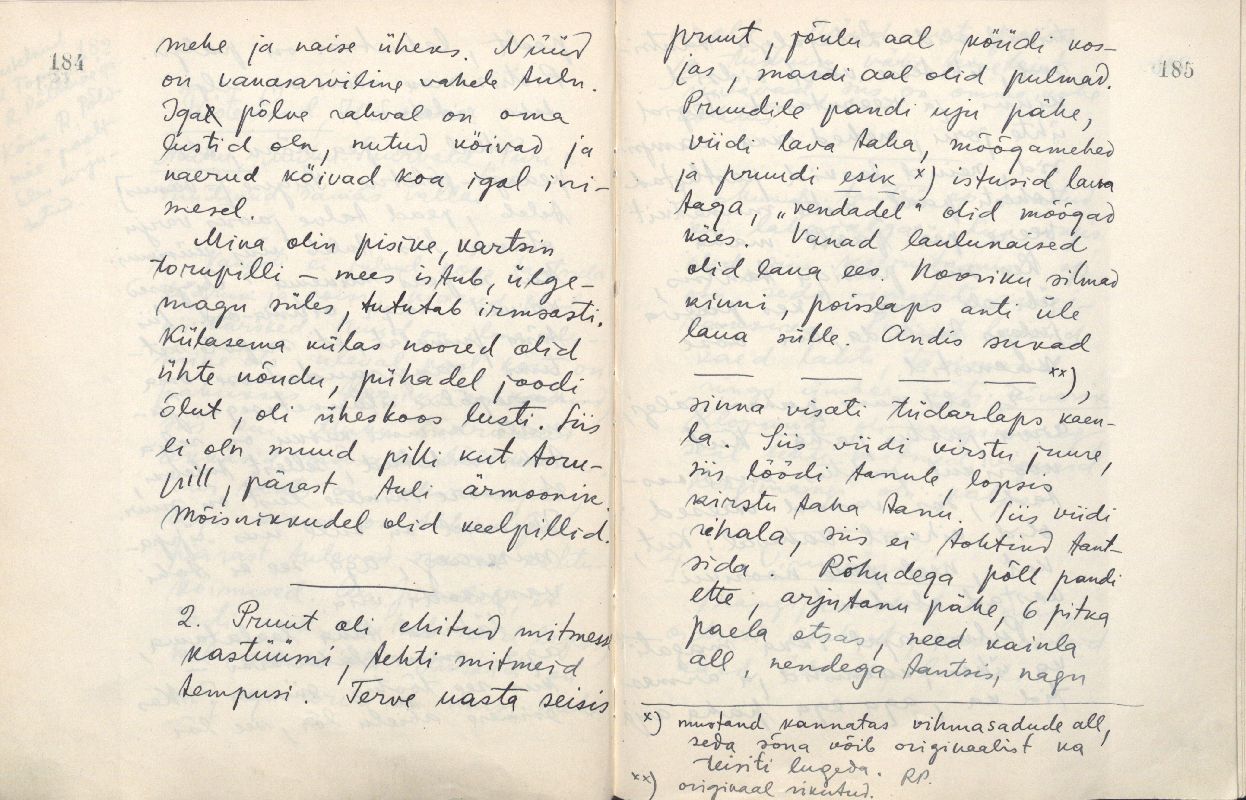 184
mehe ja naise üheks. Nüüd
on vanasarviline vahele tuln.
Igal põlve rahval on oma
lustid oln, nutud köivad ja
naerud köivad koa igal ini-
mesel.
Mina olin pisike, kartsin
torupilli – mees istub, ülge-
magu süles, tututab irmsasti.
Külasema külas noored olid
ühte nõndu, pühadel joodi
õlut, oli üheskoos lusti. Siis
li oln muud pilli kut toru-
pill, pärast tuli ärmoonik.
Mõisnikkudel olid keelpillid.
2. Pruut oli ehitud mitmesse
kastüümi, tehti mitmeid
tempusi. Terve uasta seisis
185
pruut, jõulu aal köüdi kos-
jas, mardi aal olid pulmad.
Pruudile pandi uju pähe,
viidi lava taha, möögamehed
ja pruudi esik x) istusid laua
taga, „vendadel" olid möögad
käes. Vanad laulunaised
olid laua ees. Nooriku silmad
kinni, poisslaps anti üle
laua sülle. Andis sukad
xx),
sinna visati tüdarlaps kaen-
la. Siis viidi kirstu juure,
siis löödi tanule, lopsis
kirstu taha tanu. Siis viidi
rehala, siis ei tohtind tant-
sida. Rõhudega põll pandi
ette, arjutanu pähe, 6 pitka
paela otsas, need kainla
all, nendega tantsis, nagu
x) mustand kannatas vihmasadude all,
seda sõna võib originaalist ka
teisiti lugeda. RP.
xx) originaal rikutud.